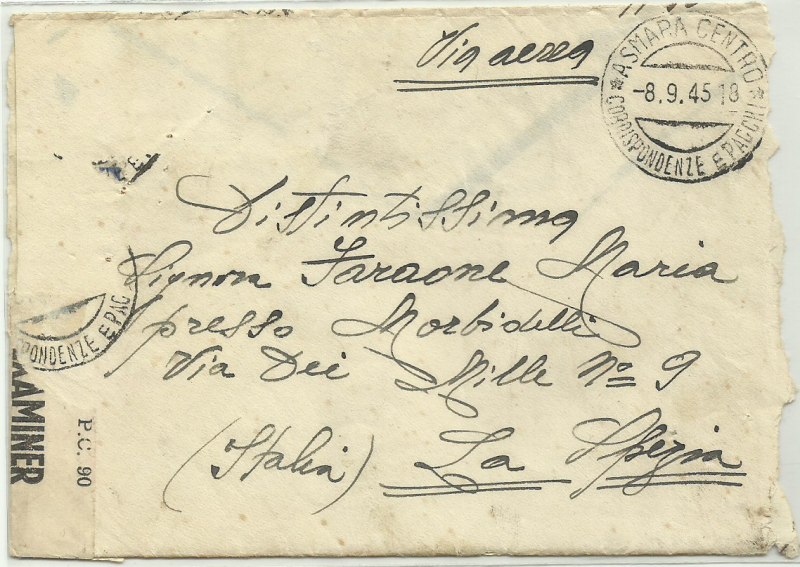 Via aerea
ASMARA CENTRO
-8.9.45 18
CORRISPONDENZE E PACCHI
Distintissima
Signora Faraone Maria
presso Morbidelli
Via Dei Mille Nº 9
(Italia) La Spezia
PONDENZE E PAC
AMINER
P.C. 90